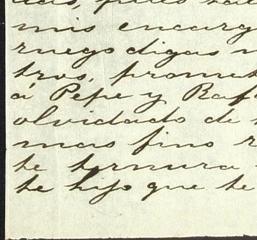 mis encarg
ruego digas
tros, promet
á Pepe y Raf
olvidado de
mas fino r
te ternura
te hijo que te